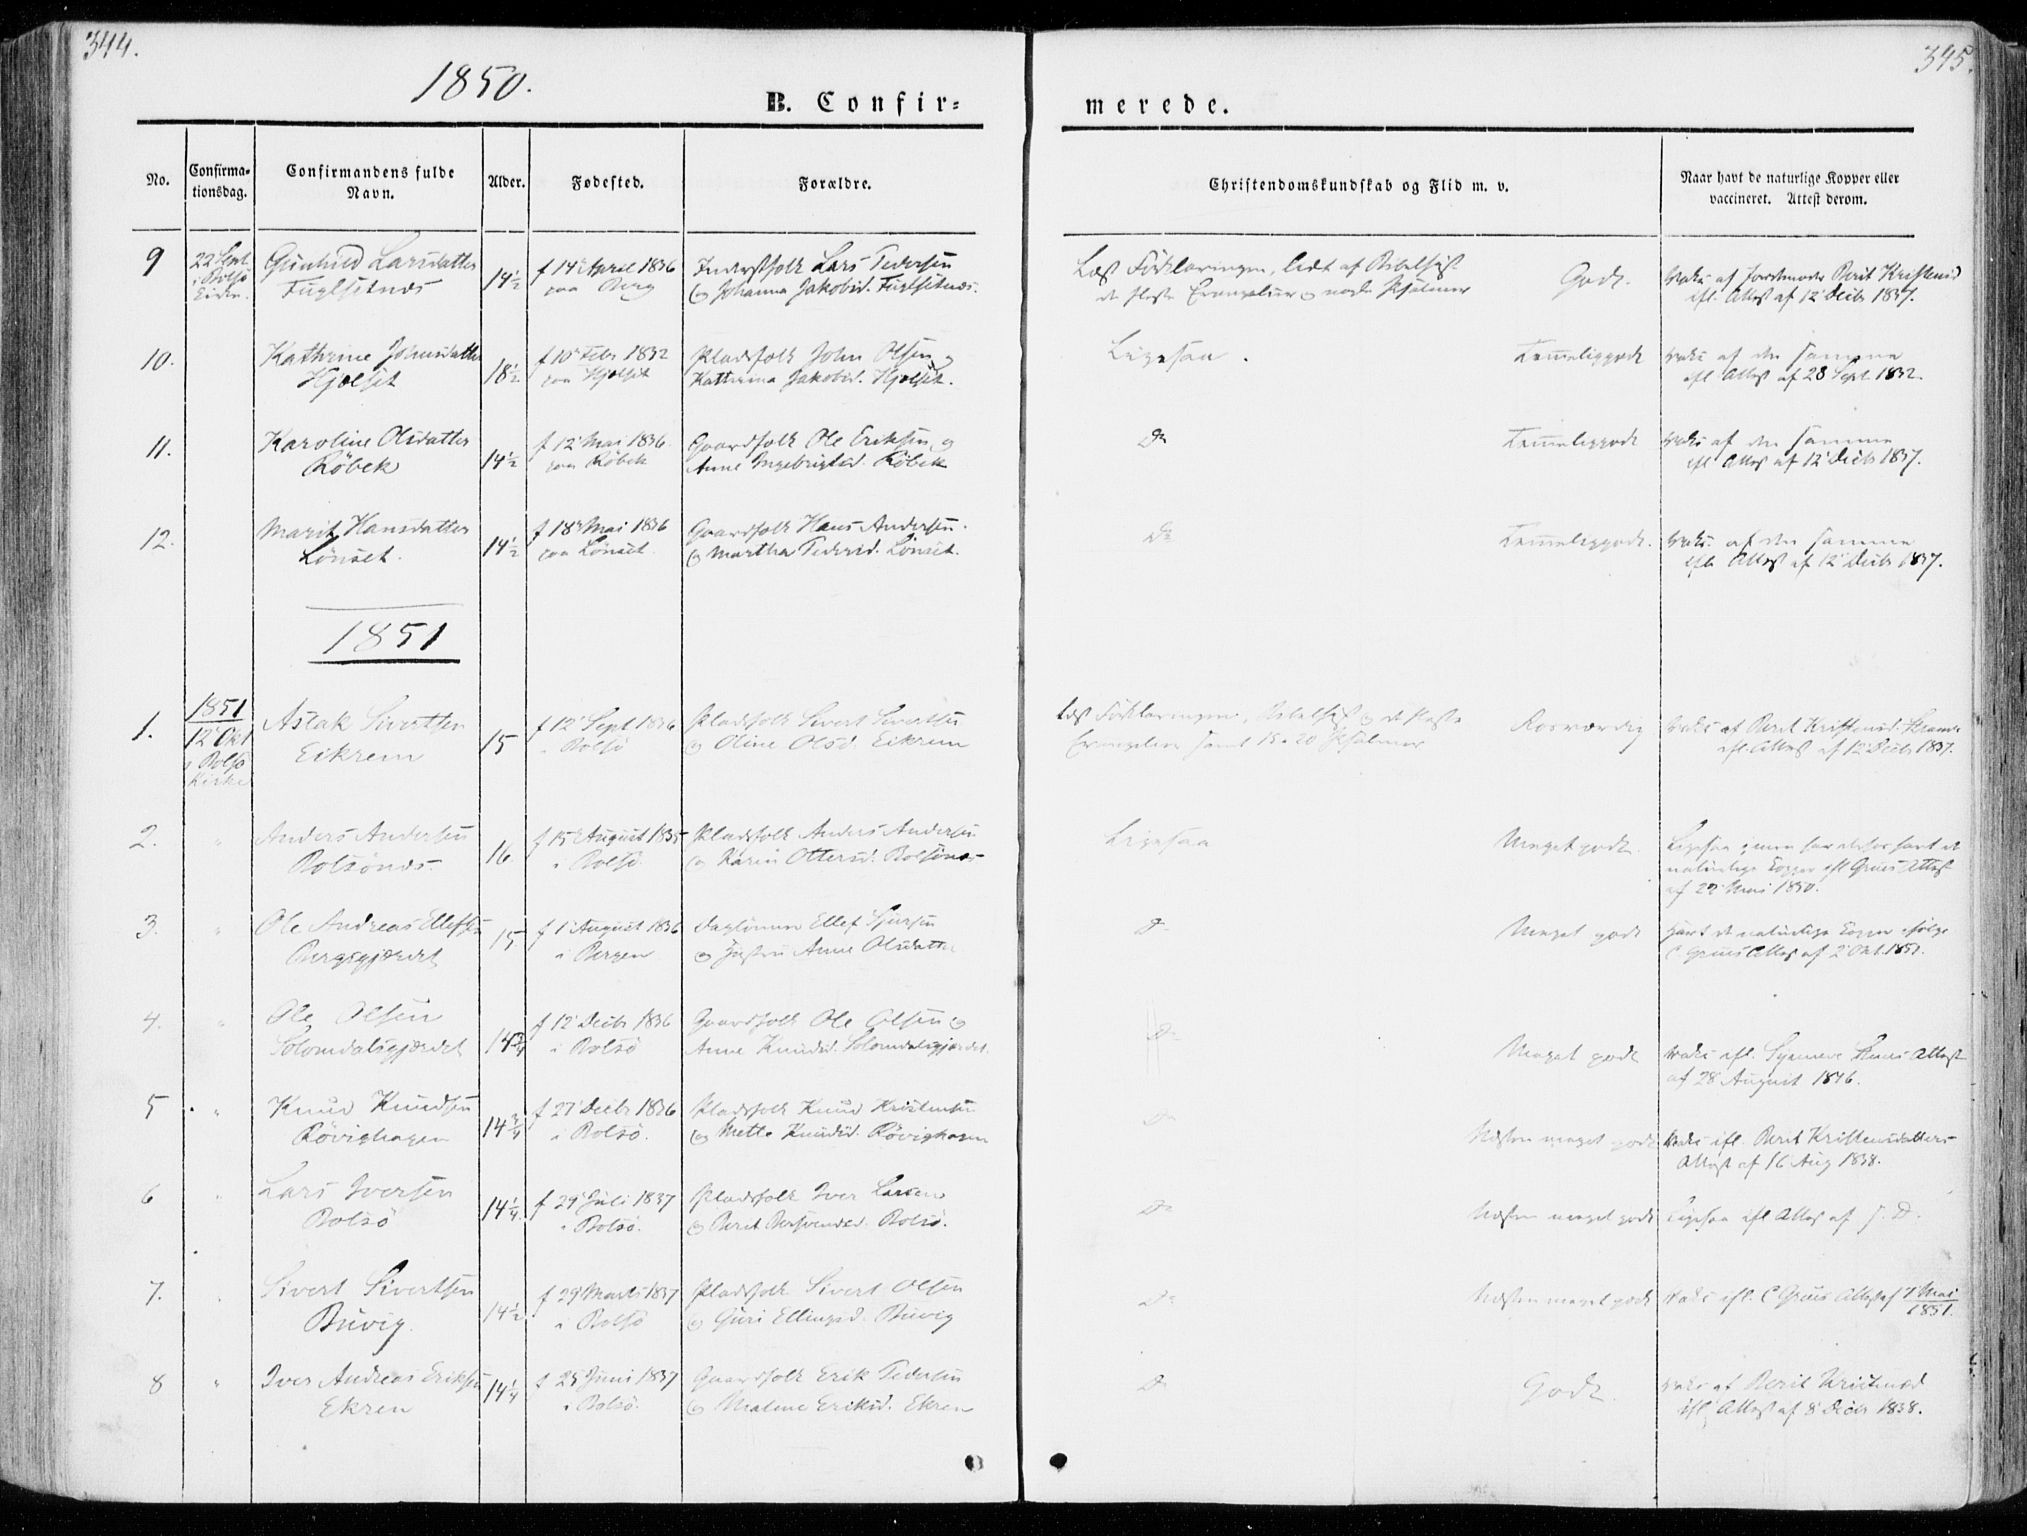 344.
345.
1850.
B. Confir=
merede.
No.
Confirma=
tionsdag.
Confirmandens fulde
Navn.
Alder.
Fødested.
Forældre.
Christendomskundskab og Flid m. v.
Naar havt de naturlige Kopper eller
vaccineret. Attest derom.
9
22 Sept
i Bolsö
Gunhild Larsdatter
Fuglsetnæs
14½
f 14 April 1836
paa Berg
Inderstfolk Lars Pedersen
og Johanna Jakobsd. Fuglsetnæs.
Læst Forklaringen, lidt af Bibelhist
de fleste Evangelier og nogle Psalmer
Godt.
Vaks af Jordemoder Berit Kristensd
ifl. Attest af 12 Decbr 1837.
10.
Kathrine Johnsdatter
Hjelset
18½
f 10 Febr 1832
paa Hjelset
Pladsfolk John Olsen og
Kathrina Jakobsd. Hjelset.
Ligesaa.
Temmeliggodt
Vaks af den samme
ifl. Attest af 28 Sept 1832.
11.
Karoline Olsdatter
Röbek
14½
f 12 Mai 1836
paa Röbek
Gaardfolk Ole Eriksen og
Anne Ingebrigtsd. Röbek
Do
Temmeliggodt
Vaks af den samme
ifl Attest af 12 Decbr 1837.
12.
Marit Hansdatter
Lönset.
14½
f 18 Mai 1836
paa Lönset.
Gaardfolk Hans Andersen
og Martha Pedersd. Lönset.
Do
Temmeliggodt.
Vaks af den samme
ifl. Attest af 12 Decbr 1837.
1851
1.
1851
12 Okt
i Bolsö
Kirke
Aslak Sivertsen
Eikrem
15
f 12 Sept 1836
i Bolsö
Pladsfolk Sivert Sivertsen
og Oline Olsd. Eikrem
Læst Forklaringen, Bibelhist og de fleste
Evangelier samt 15 a 20 Psalmer
Rosværdig
Vaks af Berit Kristensd.
ifl. Attest af 12 Decbr 1837.
2.
"
Anders Andersen
Bolsönæs.
16
f 15 August 1835
i Bolsö.
Pladsfolk Anders Andersen
og Karen Ottersd. Bolsönæs
Ligesaa
Meget godt.
Ligesaa, men har ellers havt de
naturlige Kopper ifl Gruus Attest
af 22 Mai 1850.
3.
"
Ole Andreas Ellefsen
Bergsgjerdet
15
f 1 August 1836
i Bergen
Daglönner Ellef Sjursen
og Hustru Anne Olsdatter
Do
Meget godt
Havt de naturlige Kopper ifölge
C Gruus Attest af 2 Okt. 1851.
4.
"
Ole Olsen
Solemdalsgjerdet
14¾
f 12 Decbr 1836
i Bolsö
Gaardfolk Ole Olsen og
Anne Knudsd. Solemdalsgjerdet.
Do
Meget godt
Vaks ifl. Synneve Attest
af 28 August 1846.
5
"
Knud Knudsen
Rövighagen
14¾
f 27 Decbr 1836
i Bolsö.
Pladsfolk Knud Kristensen
og Mette Knudsd. Rövighagen
Do
Næsten meget godt
Vaks ifl. Berit Kristensdatters
Attest af 16 Aug 1838.
6
"
Lars Iversen
Bolsö
14¼
f 29 Juli 1837
i Bolsö.
Pladsfolk Iver Larsen
og Berit Bolsö.
Do
Næsten meget godt
Ligesaa ifl Attest af s. D.
7.
Sivert Sivertsen
Buvig
14½
f 29 Marts 1837
i Bolsö
Pladsfolk Sivert Olsen
og Guri Ellingsd. Buvig
Do
Næsten meget godt
Vaks ifl. C Gruus Attest af 7 Mai
1851.
8
"
Iver Andreas Eriksen
Ekren
14¼
f 25 Juni 1837
i Bolsö.
Gaardfolk Erik Pedersen
og Malene Eriksd. Ekren
Do
Godt.
Vaks af Berit Kristensd
ifl Attest af 8 Decbr 1838.